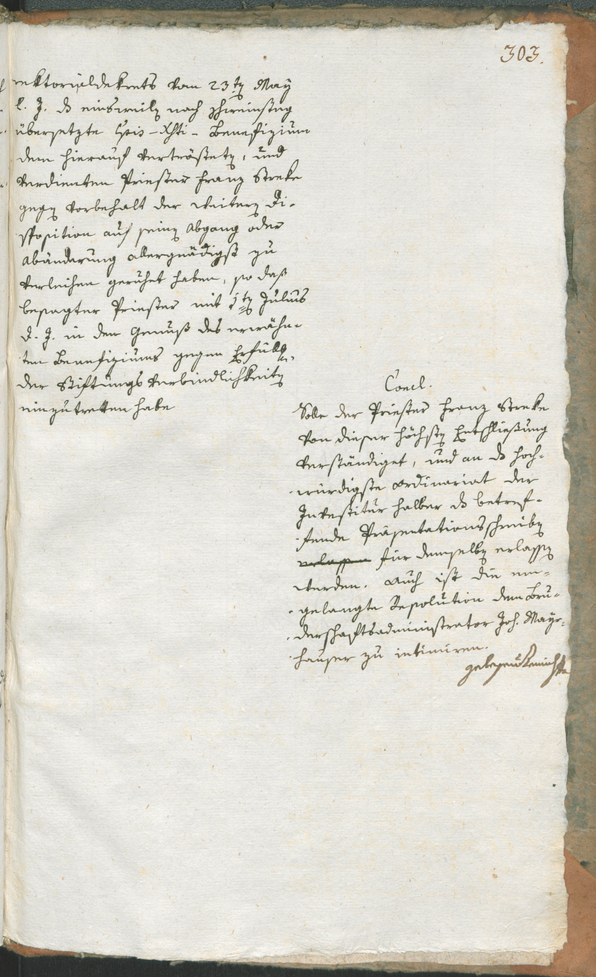 303.
rektorialdekrets vom 23ten May
l. J. ds einsweils nach
übersetzte Cris-Xsti-Benefizium
dem hierauf vertrösteten, und
verdienten Priester Franz Streke
gegen Vorbehalt der weitern Di-
sposition auf seinen Abgang oder
Abänderung allergnädigst zu
verleihen geruhet haben, so daß
besagter Priester mit 1ten Julius
d. J. in den Genuß des erwähn-
ten Benefiziums gegen Erfüllg.
der Stiftungs Verbindlichkeiten
einzutretten habe
Concl.
Solle der Priester Franz Streke
von dieser höchsten Entschließung
verständiget, und an ds hoch-
würdigste Ordinariat der
Investitur halber ds betref-
fende Präsentationsschreiben
erlassen für denselben erlassen
werden. Auch ist die ein-
gelangte Resolution dem Bru-
derschaftsadministrator Joh. Mayr-
hauser zu intimiren.